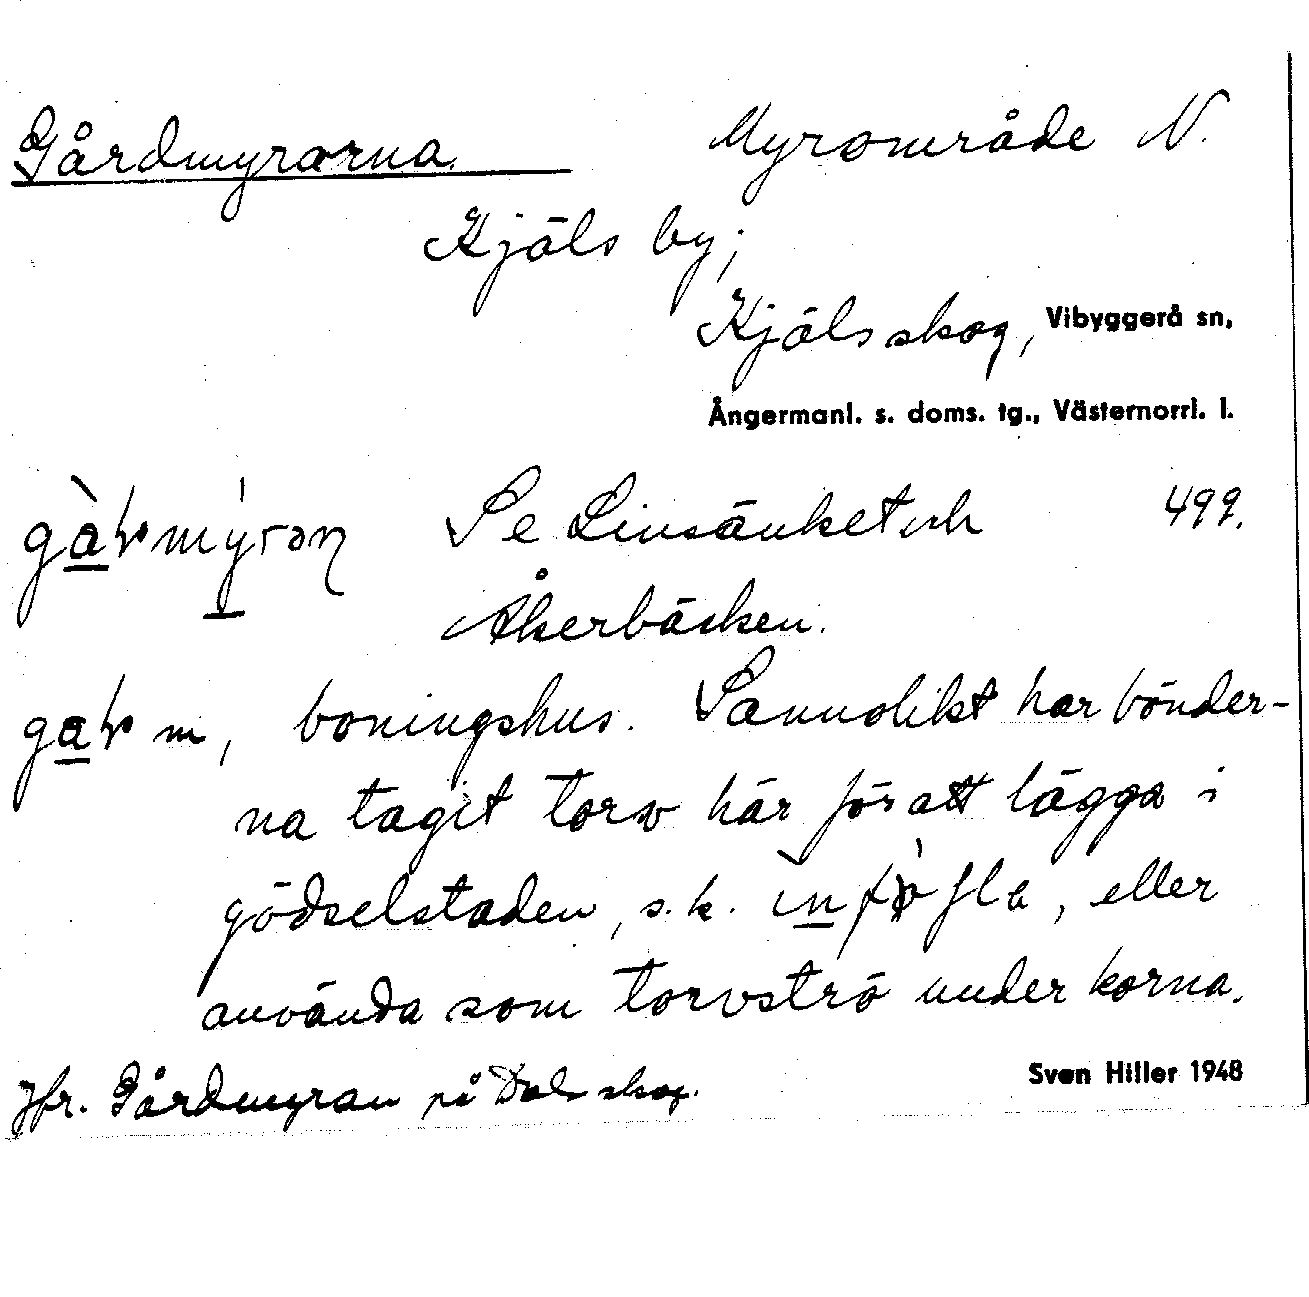 Gårdmyrarna. Myrområde N.
Kjäls by;
Kjäls skog, Vibyggerå sn,
Ångermanl. s. doms. tg., Västernorrl. l.
Se Linsänket och 499.
Åkerbäcken.
m, boningshus. Sannolikt har bönder-
na tagit torv här för att lägga i
gödselstaden, s.k. eller
använda som torvströ under korna.
Jfr. Gårdmyran på Dals skog.
Sven Hiller 1948